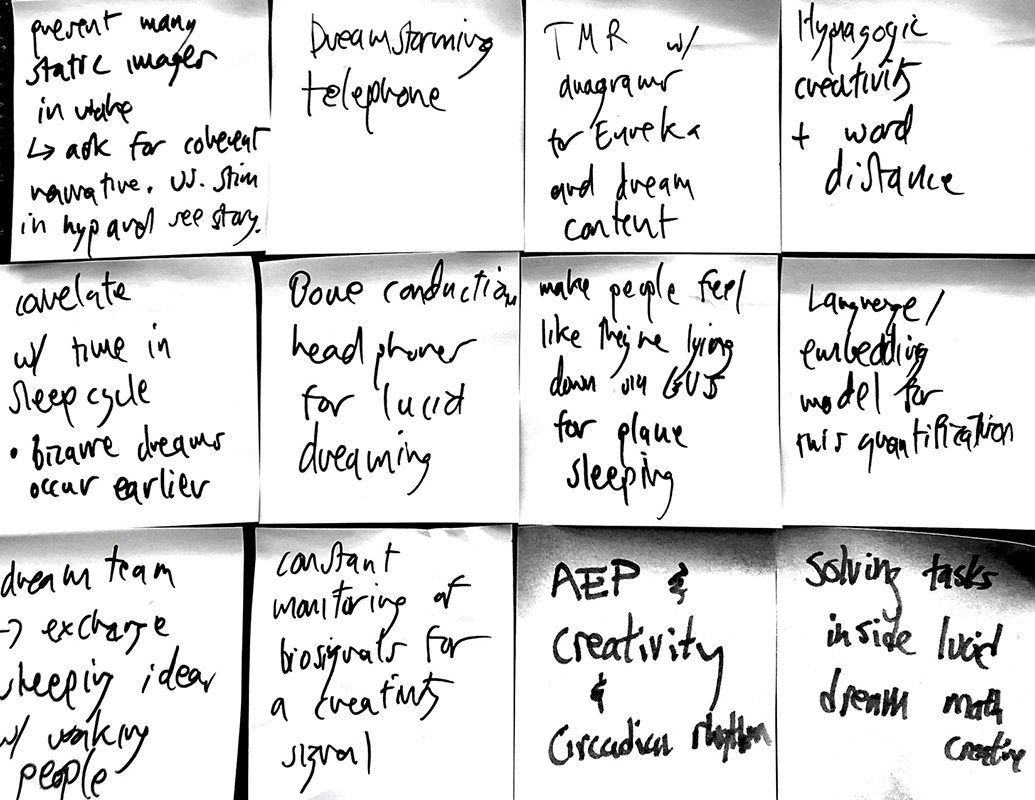 present many
static images
in wake
↳ ask for coherent
narrative. vs. stim
in hyp and see story.
Dreamstorming
telephone
TMR w/
anagrams
for Eureka
and dream
content
Hypnagogic
creativity
+ word
distance
correlate
w/ time in
sleep cycle
• bizarre dreams
occur earlier
Bone conduction
headphones
for lucid
dreaming
make people feel
like they're lying
down via GVS
for plane
sleeping
Language/
embedding
model for
this quantification
dream team
→ exchange
sleeping ideas
w/ waking
people
constant
monitoring of
biosignals for
a creativity
signal
AEP &
creativity
&
Circadian rhythm
Solving tasks
inside lucid
dream math
creative